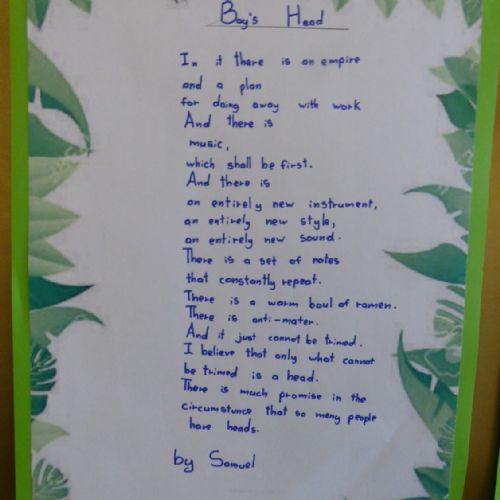 Boy's Head
In it there is an empire
and a plan
for doing away with work
And there is
music,
which shall be first.
And there is
an entirely new instrument,
an entirely new style,
an entirely new sound.
There is a set of notes
that constantly repeat.
There is a warm boul of ramen.
There is anti-mater.
And it just cannot be trimed.
I believe that only what cannot
be trimed is a head.
There is much promise in the
circumstance that so many people
have heads.
by Samuel